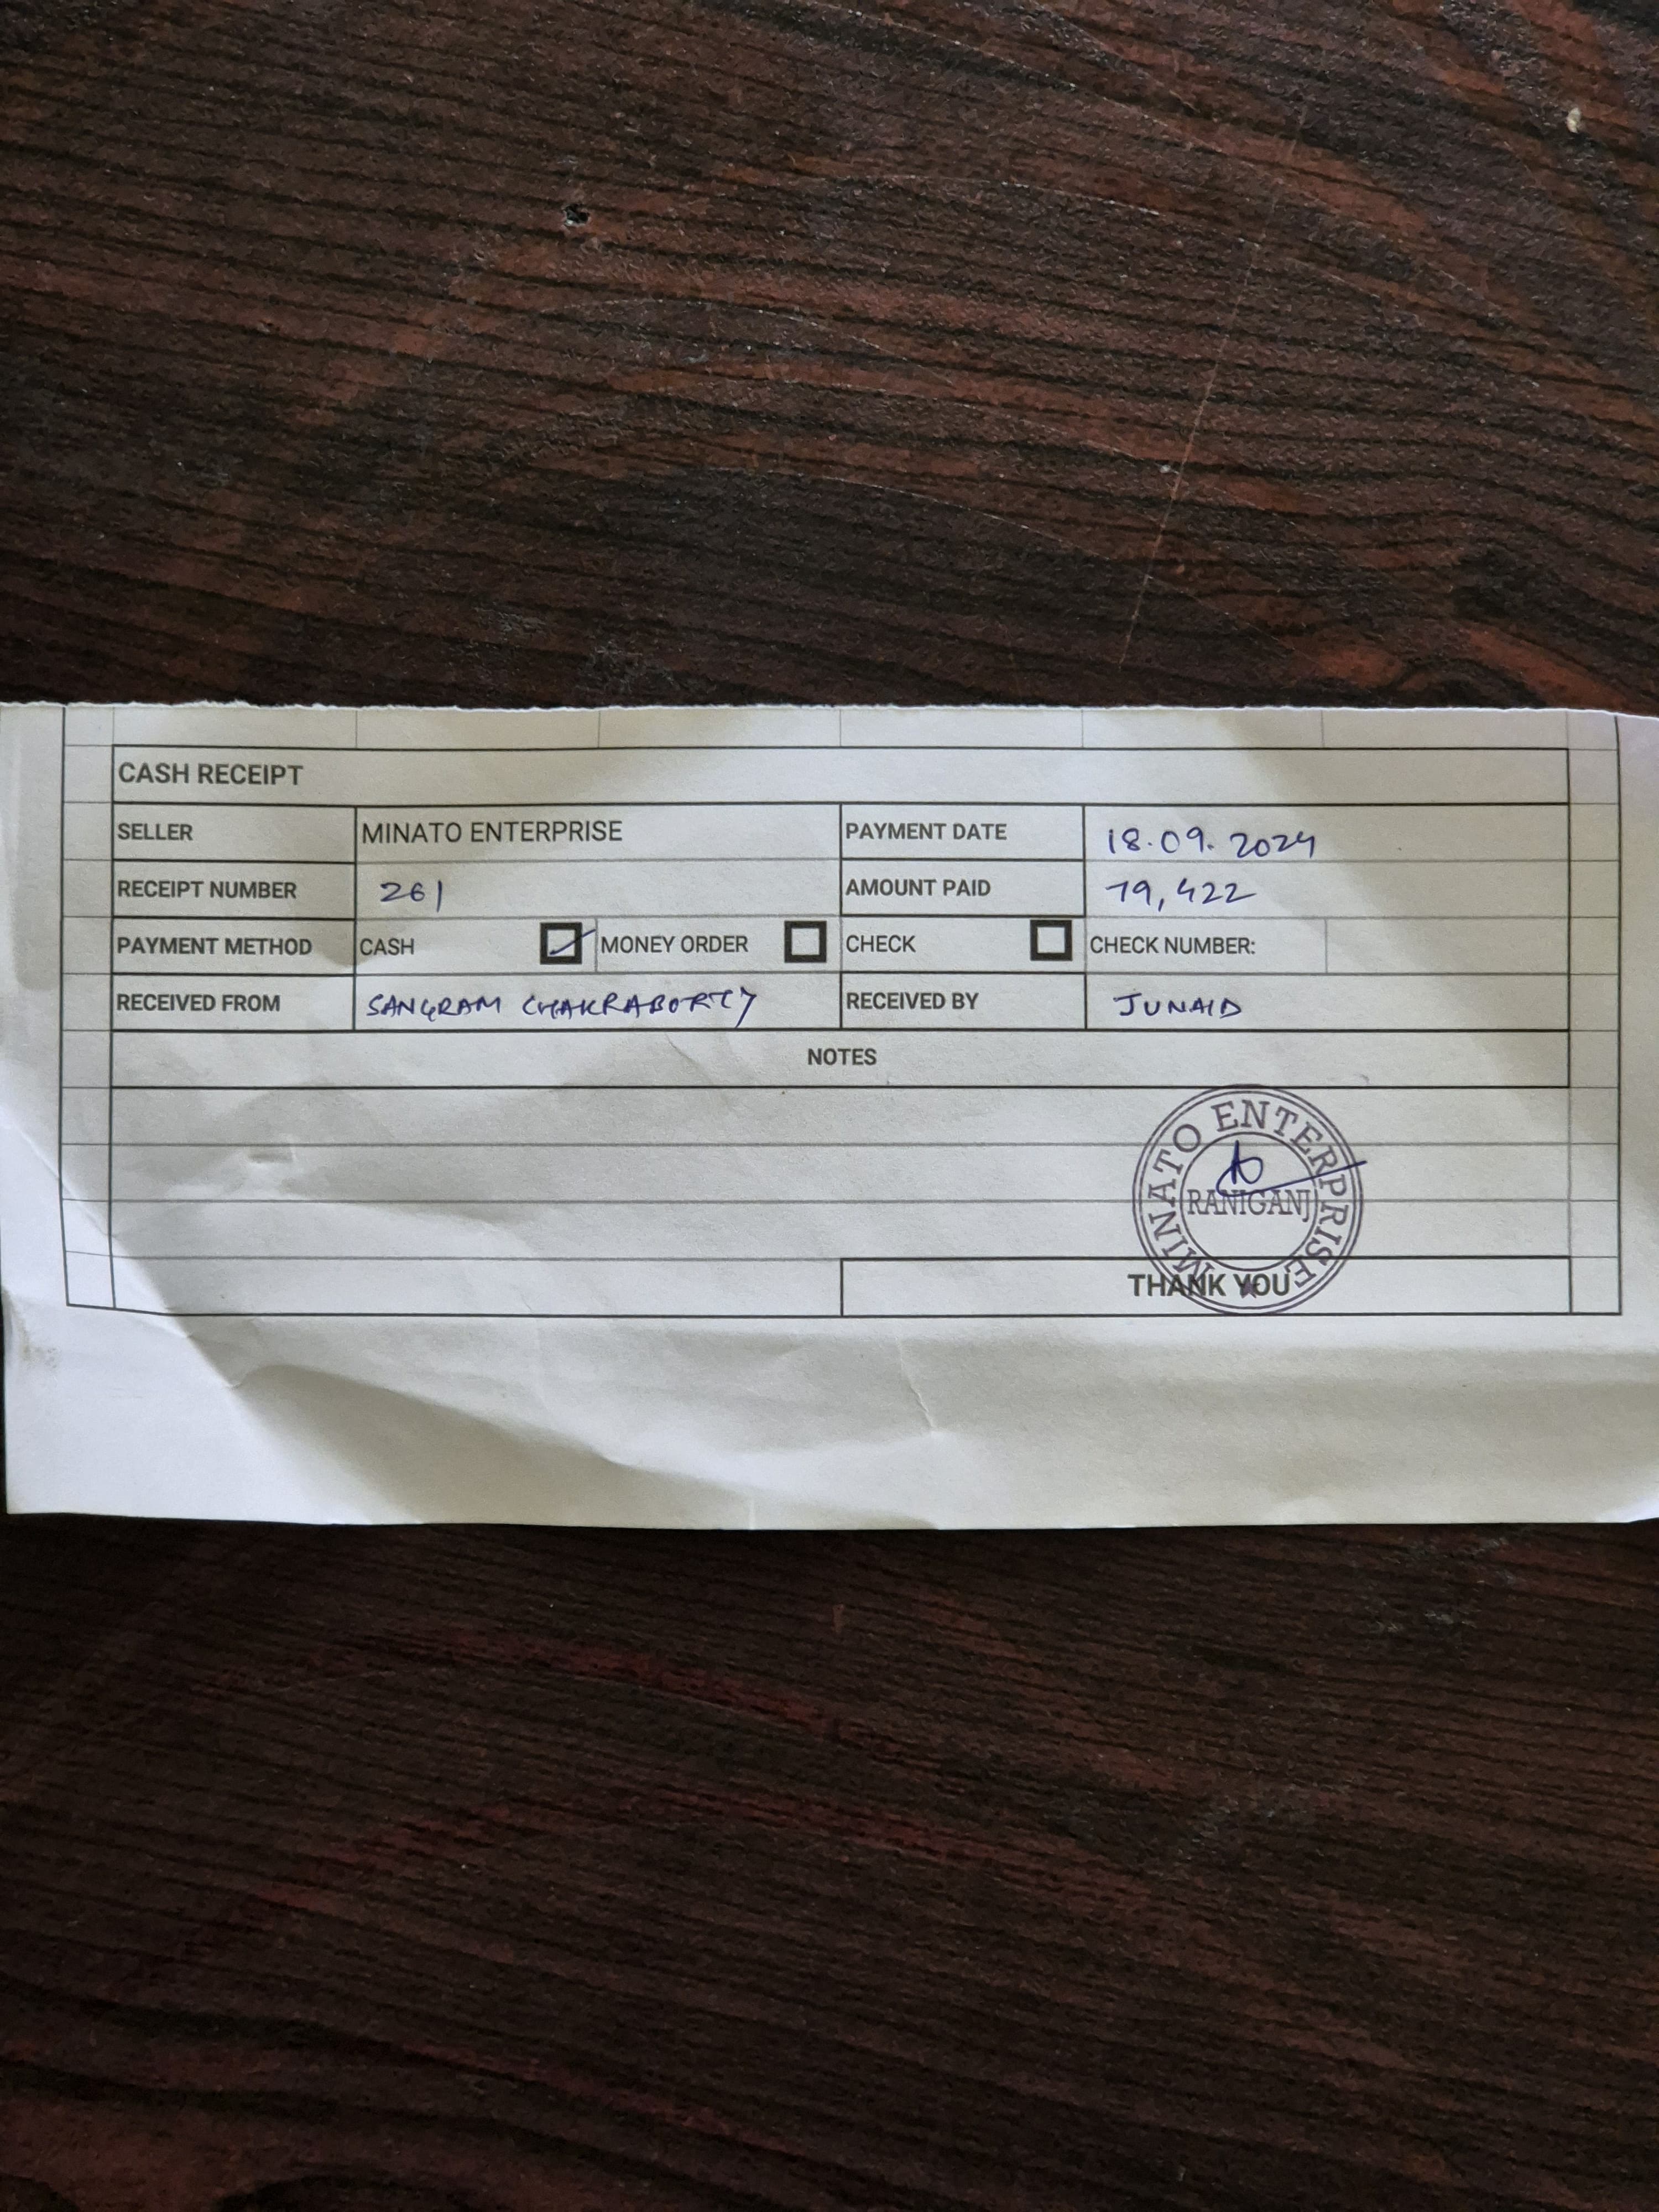 CASH RECEIPT
SELLER MINATO ENTERPRISE PAYMENT DATE 18.09.2024
RECEIPT NUMBER 261 AMOUNT PAID 79,422
PAYMENT METHOD CASH MONEY ORDER CHECK CHECK NUMBER:
RECEIVED FROM SANGRAM CHAKRABORTY RECEIVED BY JUNAID
NOTES
MINATO ENTERPRISE
RANIGANJ
THANK YOU